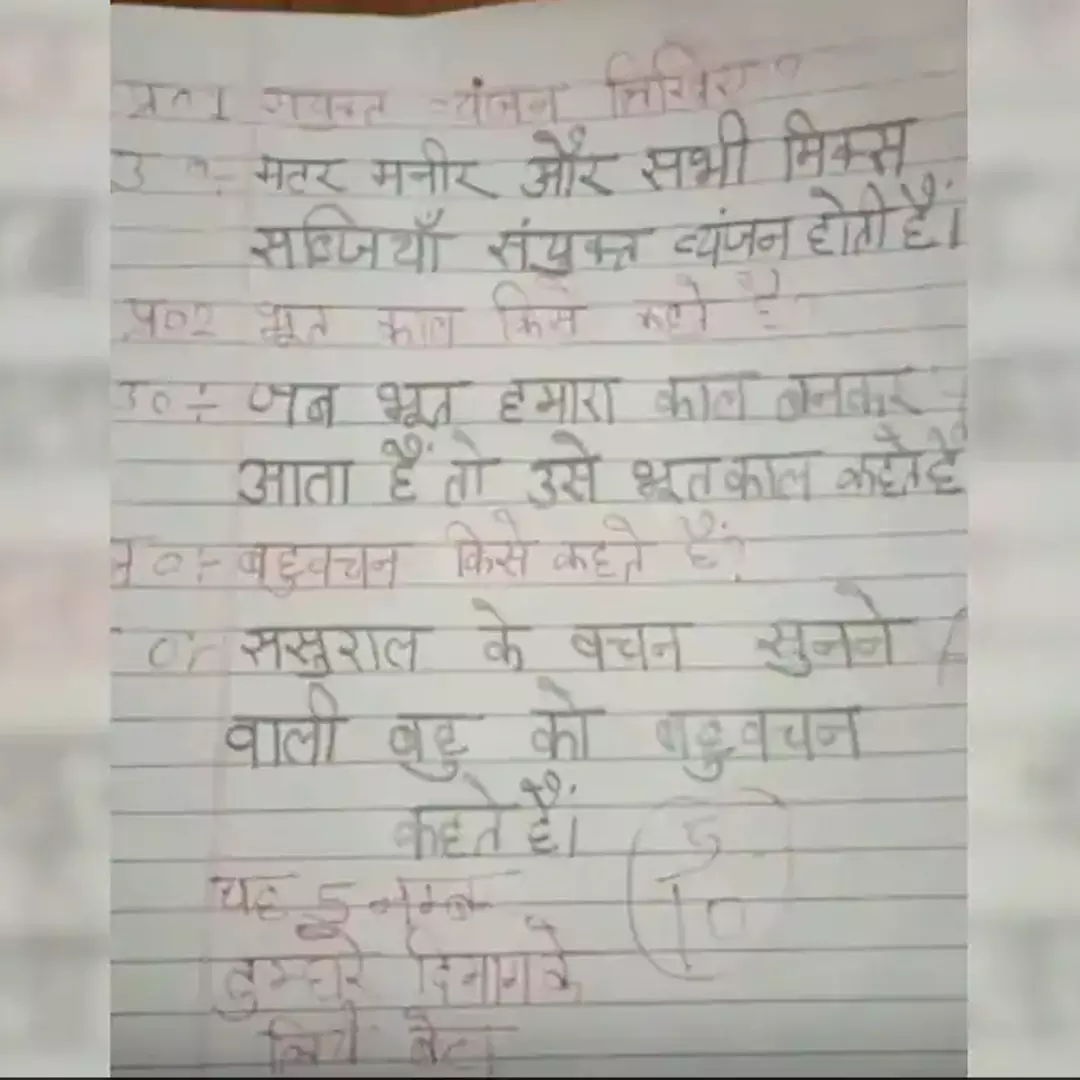 प्र०1 संयुक्त व्यंजन लिखिए
उ०- मटर मनीर और सभी मिक्स
सब्जियाँ संयुक्त व्यंजन होती हैं।
प्र०2 भूत काल किसे कहते है
उ०÷ जब भूत हमारा काल बनकर
आता हैं तो उसे भूतकाल कहते है
प्र०÷ बहुवचन किसे कहते हैं?
०÷ ससुराल के वचन सुनने
वाली बहु को बहुवचन
कहते हैं।
5
10
यह 5 नम्बर
तुम्हारे दिमाग के
लिये बेटा